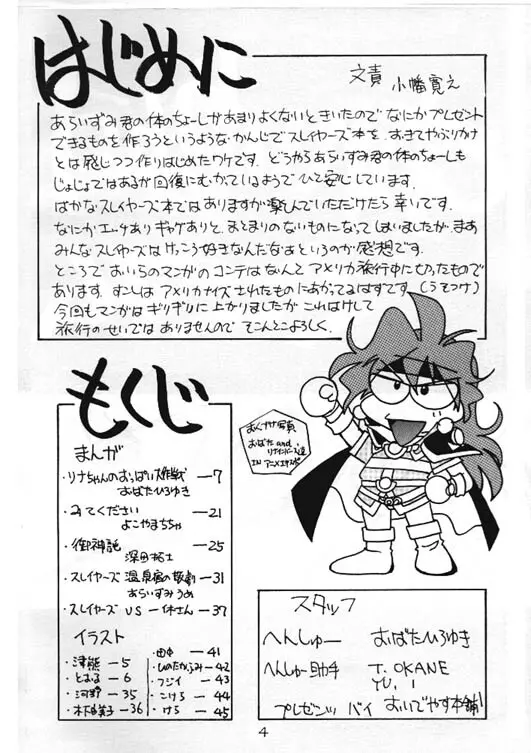 はじめに
文責 小幡寛之
あらいずみ君の体のちょーしがあまりよくないときいたので なにかプレゼント
できるものを作ろうというような かんじで スレイヤーズ本を、おきてやぶりかナ
とは感じつつ作りはじめたワケです。どうやらあらいずみ君の体のちょーしも
じょじょではあるが回復にむかっているようで ひと安心しています。
ばかなスレイヤーズ本ではありますが楽しんでいただけたら幸いです。
なにかエッチありギャグありと、まとまりのないものになってしまいましたが、まあ
みんなスレイヤーズはけっこう好きなんだなあというのが感想です。
ところでおいらのマンガのコンテはなんとアメリカ旅行中に切ったもので
あります。すこしはアメリカナイズされたものにあがってるはずです。(うそつけ)
今回もマンガはギリギリに上がりましたがこれはけして
旅行のせいではありませんので そこんとこよろしく。
もくじ
まんが
・リナちゃんのおっぱい大作戦 —7
おばたひろゆき
・みてください —21
よこやまちちゃ
・御神説 —25
深田拓士
・スレイヤーズ 温泉宿の惨劇 —31
あらいずみうめ
・スレイヤーズ VS 一休さん —37
イラスト
・津熊 —5
・とおる —6
・河野 —35
—36
・田中 —41
・ひのたかふみ —42
・フジイ —43
・こけろ —44
・けろ —45
おくづけ写真
おばた and
リナインバース達
IN アニメエキスポ
スタッフ
へんしゅー おばたひろゆき
へんしゅー助手 T. OKANE
YU. I
プレゼンツ バイ おいでやす本舗!
4